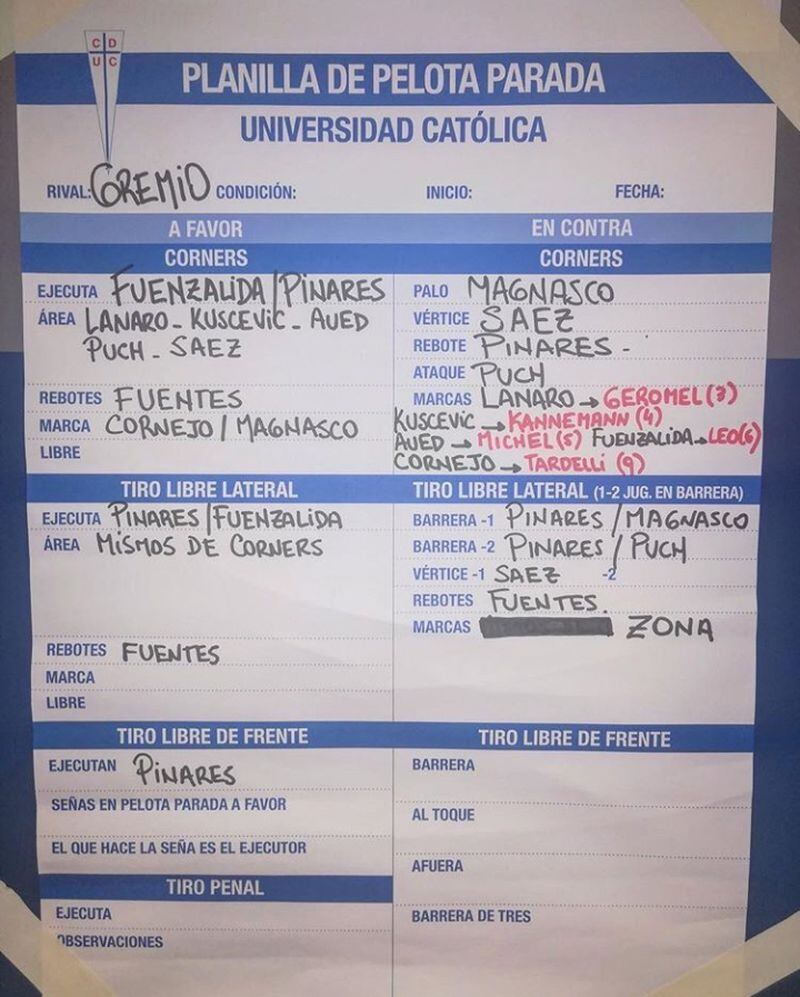 CD
UC
PLANILLA DE PELOTA PARADA
UNIVERSIDAD CATÓLICA
RIVAL: GREMIO CONDICIÓN: INICIO: FECHA:
A FAVOR
CORNERS
EJECUTA FUENZALIDA/PINARES
ÁREA LANARO - KUSCEVIC - AUED
PUCH - SAEZ
REBOTES FUENTES
MARCA CORNEJO / MAGNASCO
LIBRE
TIRO LIBRE LATERAL
EJECUTA PINARES/FUENZALIDA
ÁREA MISMOS DE CORNERS
REBOTES FUENTES
MARCA
LIBRE
TIRO LIBRE DE FRENTE
EJECUTAN PINARES
SEÑAS EN PELOTA PARADA A FAVOR
EL QUE HACE LA SEÑA ES EL EJECUTOR
TIRO PENAL
EJECUTA
OBSERVACIONES
EN CONTRA
CORNERS
PALO MAGNASCO
VÉRTICE SAEZ
REBOTE PINARES -
ATAQUE PUCH
MARCAS LANARO → GEROMEL (3)
KUSCEVIC → KANNEMANN (4)
AUED → MICHEL (5) FUENZALIDA → LEO (6)
CORNEJO → TARDELLI (9)
TIRO LIBRE LATERAL (1-2 JUG. EN BARRERA)
BARRERA -1 PINARES / MAGNASCO
BARRERA -2 PINARES / PUCH
VÉRTICE -1 SAEZ -2
REBOTES FUENTES.
MARCAS ZONA
TIRO LIBRE DE FRENTE
BARRERA
AL TOQUE
AFUERA
BARRERA DE TRES